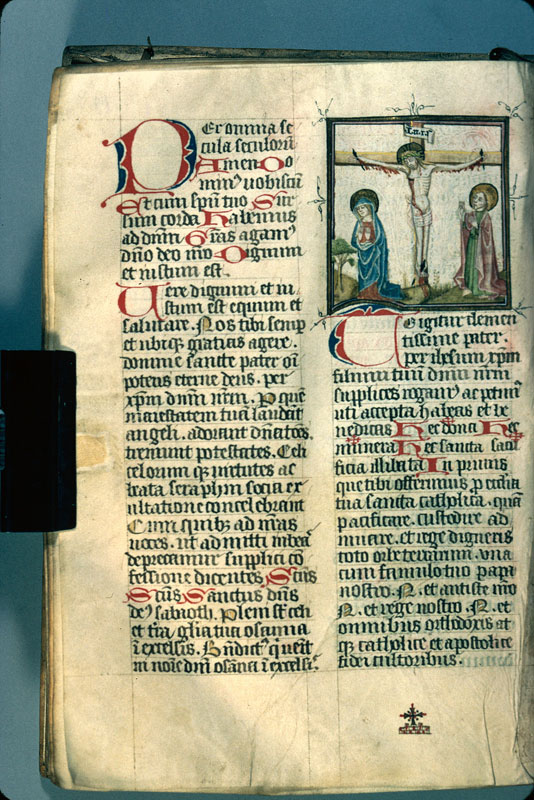 Per omnia se
cula seculorū
Amen Do
minꝰ uobiscū
Et cum spū tuo Sur
sum corda Habemus
ad dnm Gr̄as agamꝰ
dno deo nro Dignum
et iustum est.
Uere dignum et iu
stum est equum et
salutare. Nos tibi semp
et ubiqꝫ gratias agere.
domine sancte pater oī
potens eterne deus. per
xpm dnm nrm. P quē
maiestatem tuā laudāt
angeli. adorant dn̄atoēs.
tremunt potestates. Celi
celorum qꝫ uirtutes ac
beata seraphin socia ex
ultatione concelebrant
Cum quibꝫ ad nr̄as
uoces. ut admitti iubeas
deprecamur supplici cō
fessione dicentes. Scūs
Scūs Sanctus dn̄s
deꝰ sabaoth. Pleni st̄ celi
et tr̄a gl̄ia tua osanna
ī excelsis. Bn̄dictꝰ qui uēit
in noīe dnī osāna ī excelsī.
I.n.r.i.
Te igitur clemen
tissime pater.
per ihesum xpm
filium tuum dnm nrm
supplices rogamꝰ ac petimꝰ
uti accepta habeas et be
nedicas Hec dona Hec
munera Hec sancta sacri
ficia illibata In primis
que tibi offerimus p ecclīa
tua sancta catholica. quā
pacificare. custodire ad
unare. et rege digneris
toto orbe terrarum. una
cum famulo tuo papa
nostro. N. et antiste nro
N. et rege nostro. N. et
omnibus orthodoxis at
qꝫ catholice et apostolice
fidei cultoribus.